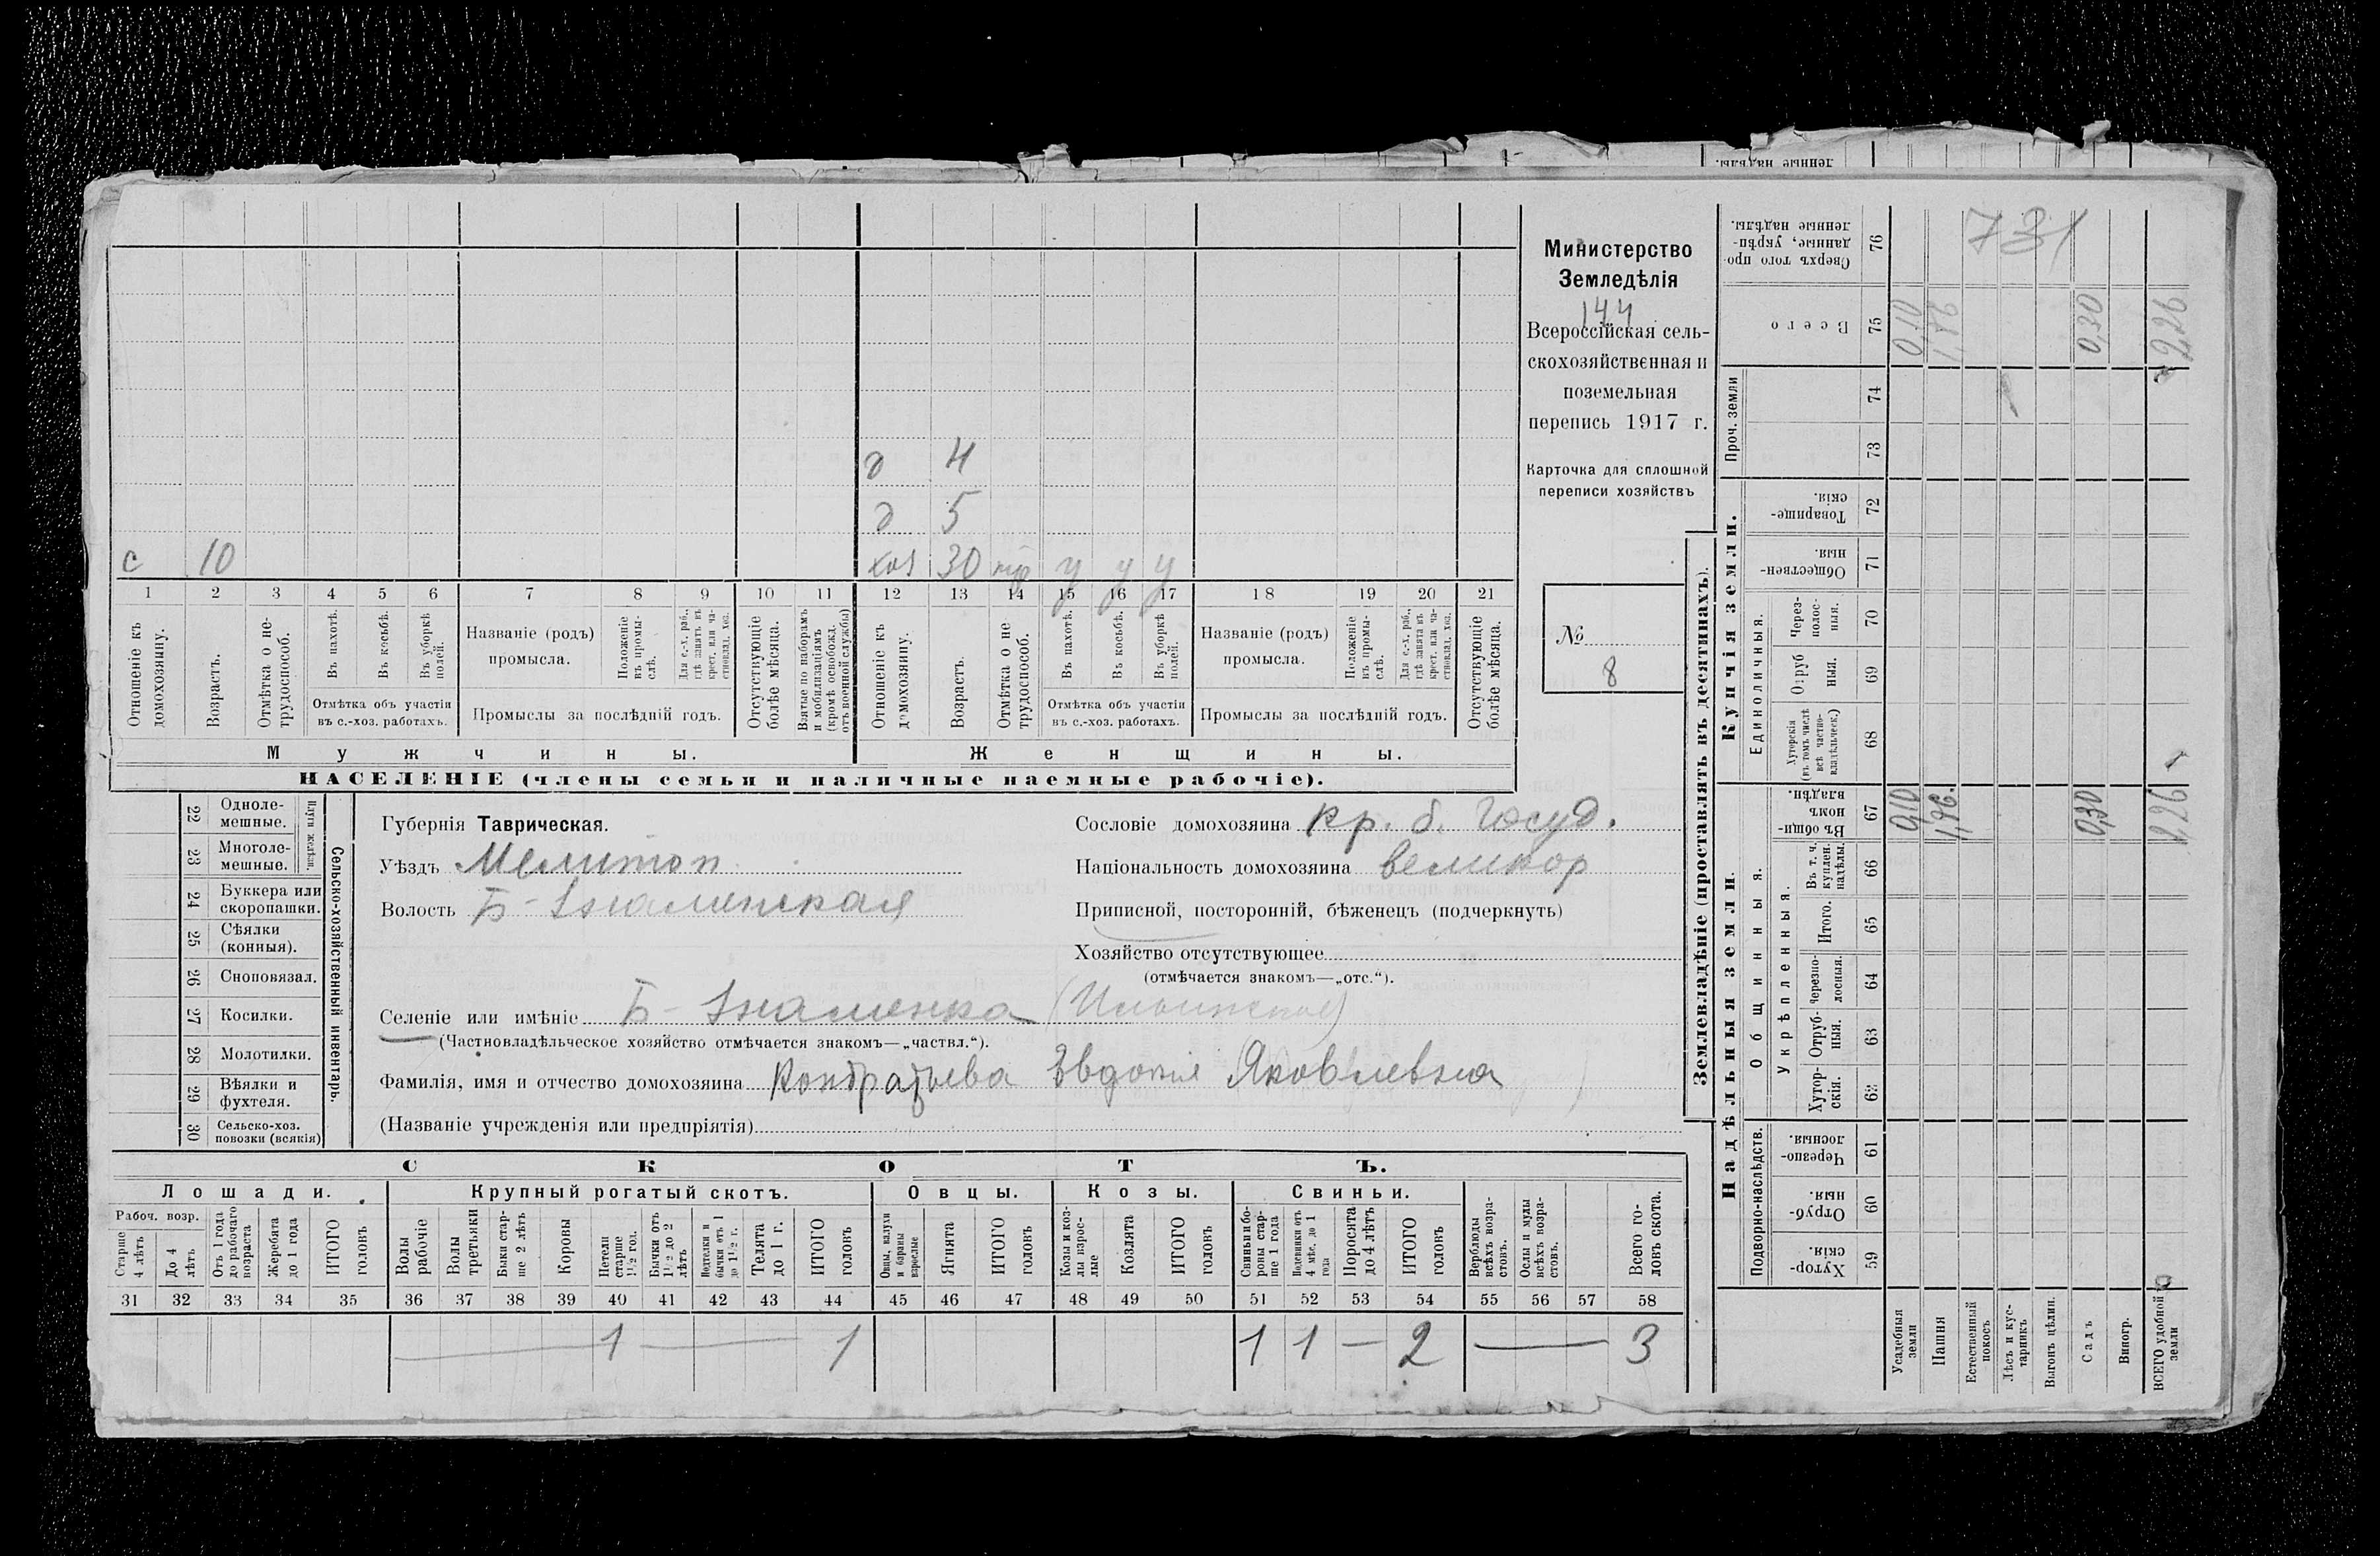 леннные надѣлы.
д 4
д 5
с 10 хоз 30 тр у у у
1 2 3 4 5 6 7 8 9 10 11 12 13 14 15 16 17 18 19 20 21
Отношеніе къ домохозяину.
Возрастъ.
Отмѣтка о не-трудоспособ.
Въ пахотѣ.
Въ косьбѣ.
Въ уборкѣ полей.
Отмѣтка объ участіи въ с.-хоз. работахъ.
Названіе (родъ) промысла.
Положеніе въ промы-слѣ.
Для с.-х. раб., гдѣ занятъ въ крест. или ча-стновлад. хоз.
Промыслы за послѣдній годъ.
Отсутствующіе болѣе мѣсяца.
Взятые по наборамъ и мобилизаціямъ (кромѣ освобожд. отъ военной службы)
Отношеніе къ домохозяину.
Возрастъ.
Отмѣтка о не трудоспособ.
Въ пахотѣ.
Въ косьбѣ.
Въ уборкѣ полей.
Отмѣтка объ участіи въ с.-хоз. работахъ.
Названіе (родъ) промысла.
Положеніе въ промы-слѣ.
Для с.-х. раб., гдѣ занята въ крест. или ча-стновлад. хоз.
Промыслы за послѣдній годъ.
Отсутствующіе болѣе мѣсяца.
Мужчины. Женщины.
НАСЕЛЕНІЕ (члены семьи и наличные наемные рабочіе).
Министерство
Земледѣлія
144
Всероссійская сель-
скохозяйственная и
поземельная
перепись 1917 г.
Карточка для сплошной
переписи хозяйствъ
№
8
22 Одноле-мешные.
23 Многоле-мешные.
Плуги желѣзн.
24 Буккера или скоропашки.
25 Сѣялки (конныя).
26 Сноповязал.
27 Косилки.
28 Молотилки.
29 Вѣялки и фухтеля.
30 Сельско-хоз. повозки (всякія)
Сельско-хозяйственный инвентарь.
Губернія Таврическая.
Уѣздъ Мелитоп.
Волость Б-Знаменская
Сословіе домохозяина кр. б. госуд.
Національность домохозяина великор
Приписной, посторонній, бѣженецъ (подчеркнуть)
Хозяйство отсутствующее
(отмѣчается знакомъ—„отс.“).
Селеніе или имѣніе Б-Знаменка
(Частновладѣльческое хозяйство отмѣчается знакомъ—„частвл.“).
Фамилія, имя и отчество домохозяина Кондратьева Явдокія Яковлевна
(Названіе учрежденія или предпріятія)
СКОТЪ.
Лошади. Крупный рогатый скотъ. Овцы. Козы. Свиньи.
Рабоч. возр.
Старше 4 лѣтъ
До 4 лѣтъ
Отъ 1 года до рабочаго возраста
Жеребята до 1 года
ИТОГО головъ
Волы рабочіе
Волы третьяки
Быки стар-ше 2 лѣтъ
Коровы
Нетели старше 1½ год.
Бычки отъ 1½ до 2 лѣтъ
Подтелки и бычки отъ 1 до 1½ г.
Телята до 1 г.
ИТОГО головъ
Овцы, валухи и бараны взрослые
Ягнята
ИТОГО головъ
Козы и коз-лы взрос-лые
Козлята
ИТОГО головъ
Свиньи и бо-ровы стар-ше 1 года
Подсвинки отъ 4 мѣс. до 1 года
Поросята до 4 лѣтъ
ИТОГО головъ
Верблюды всѣхъ возра-стовъ.
Ослы и мулы всѣхъ возра-стовъ.
Всего го-ловъ скота.
31 32 33 34 35 36 37 38 39 40 41 42 43 44 45 46 47 48 49 50 51 52 53 54 55 56 57 58
— 1 — 1 1 1 — 2 — 3
Землевладѣніе (проставлять въ десятинахъ).
Надѣльныя земли.
Купчія земли.
Проч. земли
Подворно-наслѣдств.
Общинныя.
Укрѣпленныя.
Единоличныя.
Сверхъ того про-данные, укрѣп-ленные надѣлы. 76 731
Всего 75 0,10 1,86 0,30 2,26
74
73
Товарище-скія. 72
Обществен-ныя. 71
Через-полос-ныя. 70
Отруб ныя. 69
Хуторскія (въ томъ числѣ всѣ частно-владѣльческ.) 68
Въ общи-номъ владѣн. 67 0,10 1,86. 0,30 2,26
Въ т. ч. куплен. надѣлы. 66
Итого. 65
Черезпо-лосныя. 64
Отруб-ныя. 63
Хутор-скія. 62
Черезпо-лосныя. 61
Отруб-ныя. 60
Хутор-скія. 59
Усадебныя земли
Пашня
Естественный покосъ
Лѣсъ и кус-тарникъ
Выгонъ цѣлин.
Садъ
Виногр.
ВСЕГО удобной земли